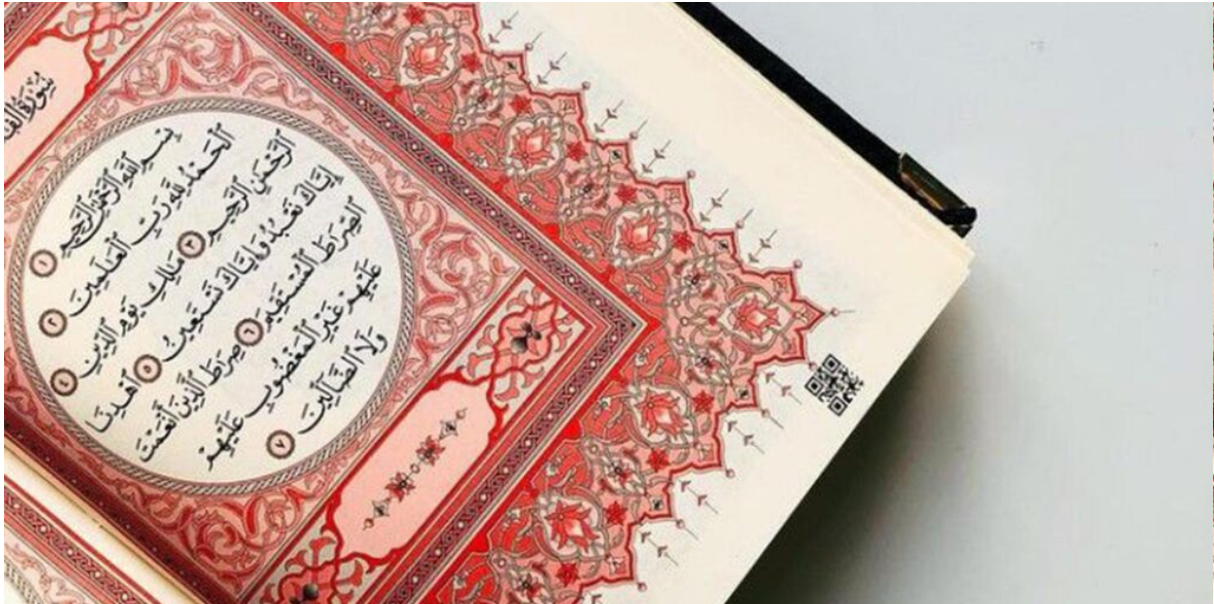 سُورَةُ الفَا
بِسْمِ ٱللَّهِ ٱلرَّحْمَٰنِ ٱلرَّحِيمِ ١
ٱلْحَمْدُ لِلَّهِ رَبِّ ٱلْعَٰلَمِينَ ٢
ٱلرَّحْمَٰنِ ٱلرَّحِيمِ ٣ مَٰلِكِ يَوْمِ ٱلدِّينِ ٤
إِيَّاكَ نَعْبُدُ وَإِيَّاكَ نَسْتَعِينُ ٥ ٱهْدِنَا
ٱلصِّرَٰطَ ٱلْمُسْتَقِيمَ ٦ صِرَٰطَ ٱلَّذِينَ أَنْعَمْتَ
عَلَيْهِمْ غَيْرِ ٱلْمَغْضُوبِ عَلَيْهِمْ
وَلَا ٱلضَّآلِّينَ ٧